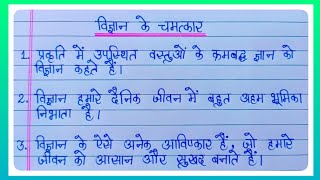 विज्ञान के चमत्कार
1. प्रकृति में उपस्थित वस्तुओं के क्रमबद्ध ज्ञान को
विज्ञान कहते हैं।
2. विज्ञान हमारे दैनिक जीवन में बहुत अहम भूमिका
निभाता है।
3. विज्ञान के ऐसे अनेक आविष्कार हैं, जो हमारे
जीवन को आसान और सुखद बनाते हैं।